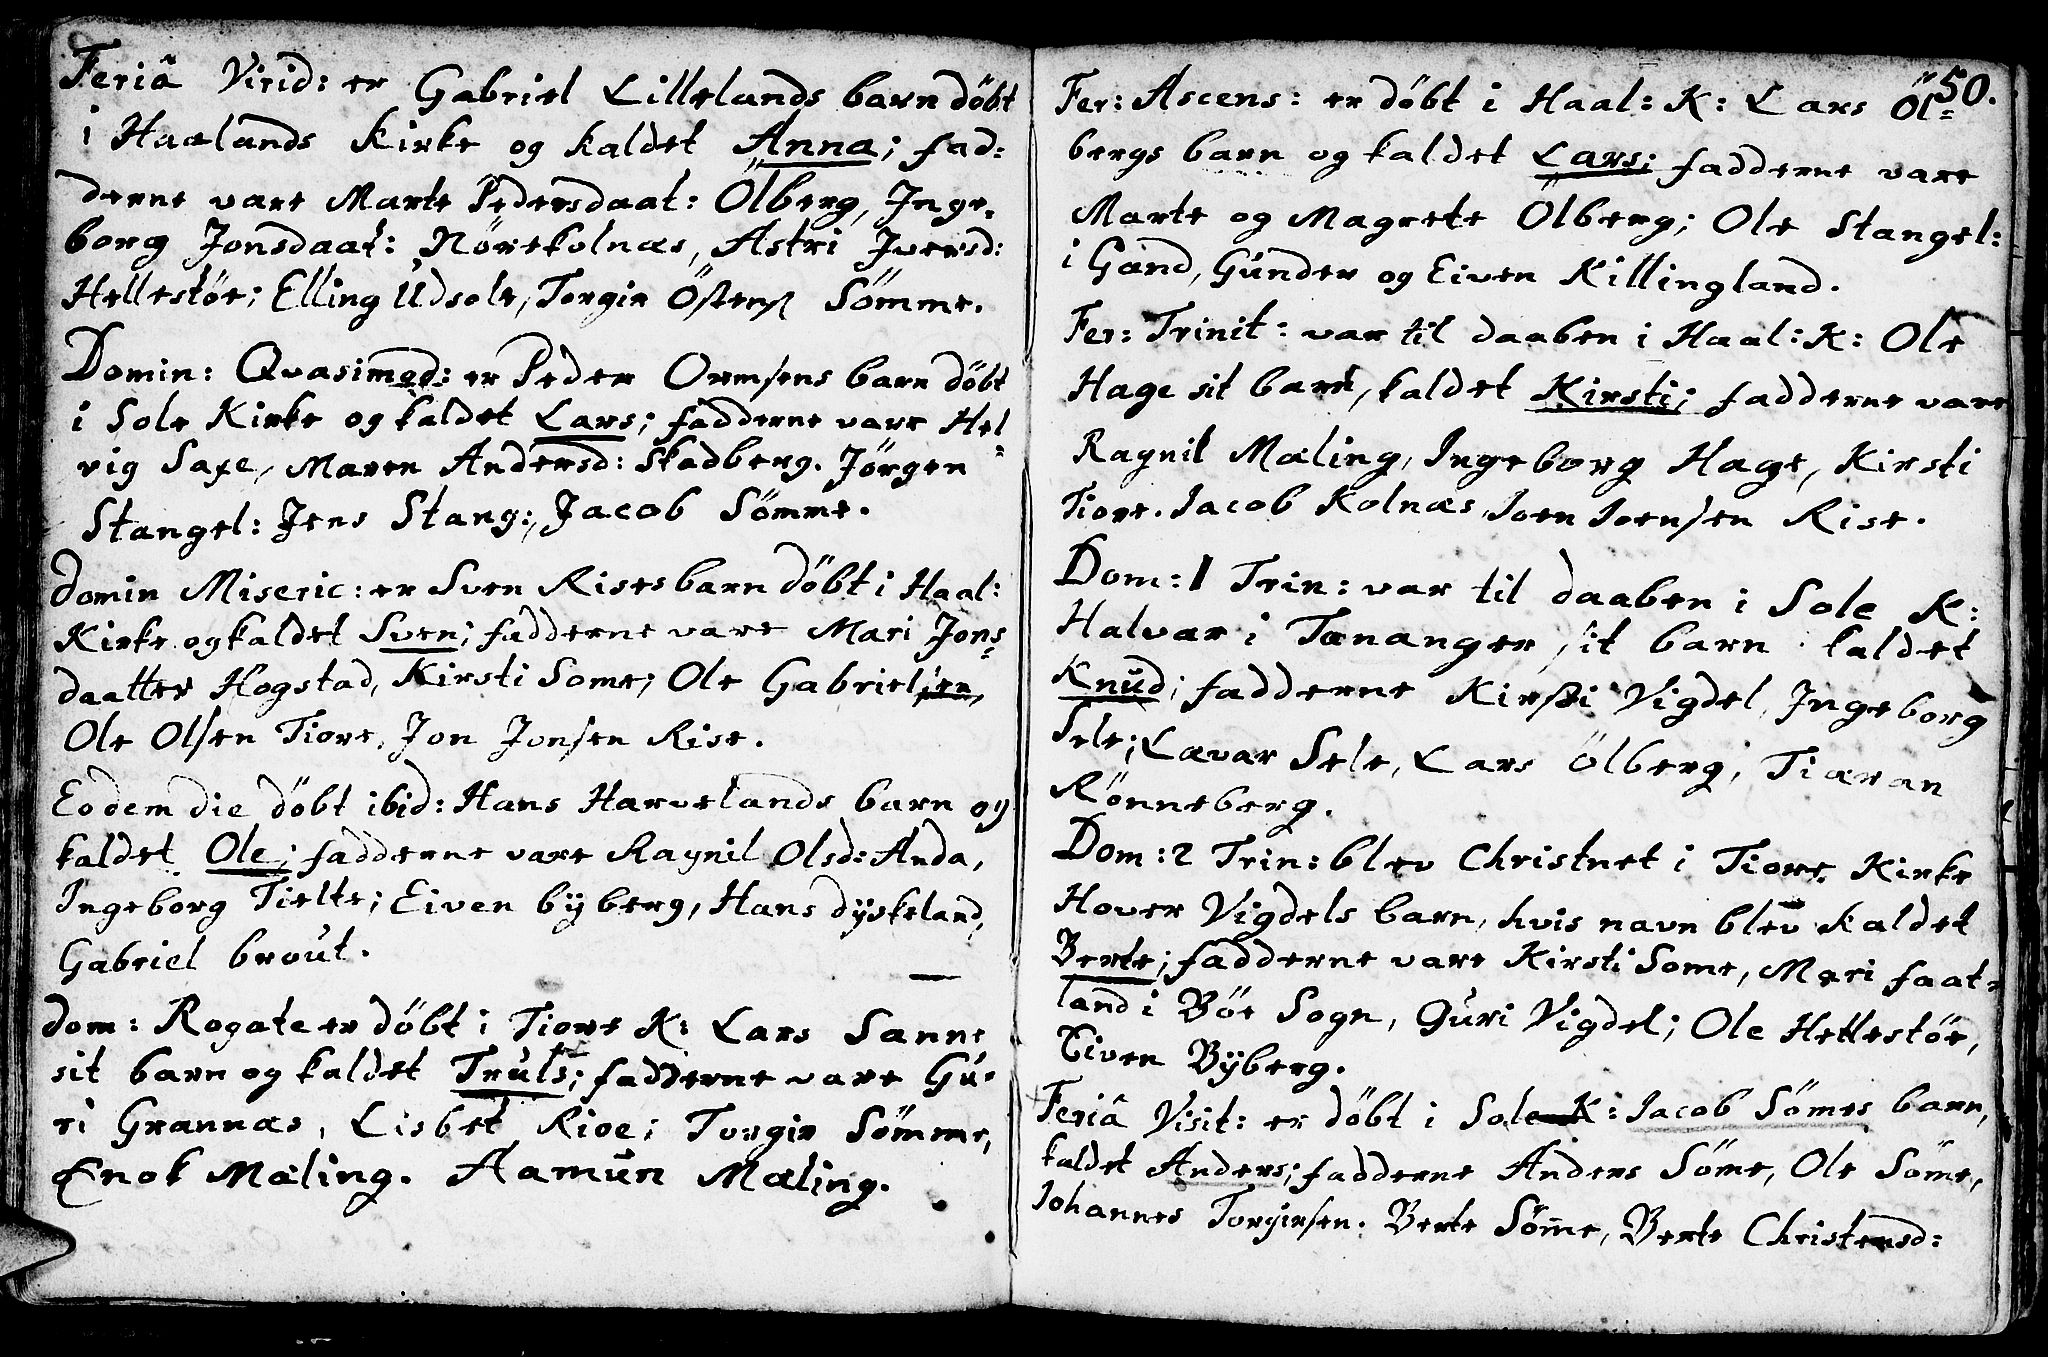 Feriâ Virid: er Gabriel Lillelands barn döbt
i Haalands Kirke og kaldet Anna; fad:
derne vare Marte Pedersdaat: Ölberg, Inge:
borg Jonsdaat: Nörekolnæs, Astri Iversd:
Hellestöe; Elling Udsole, Torgir Östens Sömme.
Domin: Qvasimod: er Peder Ormsens barn döbt
i Sole Kirke og kaldet Lars; fadderne vare Hel:
vig Saxe, Maren Andersd: Skadberg. Jörgen
Stangel: Jens Stang:, Jacob Sömme.
Domin Miseric: er Sven Rises barn döbt i Haal:
Kirke og kaldet Sven; fadderne vare Mari Jons:
daatter Hogstad, Kirsti Some; Ole Gabrielsen,
Ole Olsen Tiore, Jon Jonsen Rise.
Eodem die döbt ibid: Hans Harvelands barn og
kaldet Ole; fadderne vare Ragnil Olsd: Anda,
Ingeborg Tielte; Eiven byberg, Hans dyskeland,
Gabriel brout.
Dom: Rogate er döbt i Tiore K: Lars Sanne
sit barn og kaldet Truls; fadderne vare Gu:
ri Grannæs, Lisbet Rige; Torgir Sömme,
Enok Mæling. Aamun Mæling.
50.
Fer: Ascens: er döbt i Haal: K: Lars Öl:
bergs barn og kaldet Lars; fadderne vare
Marte og Magrete Ölberg; Ole Stangel:
i Gand, Gunder og Eiven Killingland.
Fer: Trinit: var til daaben i Haal: K: Ole
Hage sit barn, kaldet Kirsti; fadderne vare
Ragnil Mæling, Ingeborg Hage, Kirsti
Tiore. Jacob Kolnæs, Joen Joensen Rise.
Dom: 1 Trin: var til daaben i Sole K:
Halvar i Tananger sit barn kaldet
Knud; fadderne Kirsti Vigdel, Ingeborg
Sele; Lavar Sele, Lars Ölberg, Tiæran
Rönneberg.
Dom: 2 Trin: blev Christnet i Tiore Kirke
Hover Vigdels barn, hvis navn blev kaldet
Berte; fadderne vare Kirsti Some, Mari faat:
land i Böe Sogn, Guri Vigdel; Ole Hellestöe,
Eiven Byberg.
Feriâ Visit: er döbt i Sole K: Jacob Sömes barn,
kaldet Anders; fadderne Anders Söme, Ole Söme,
Johannes Torgirsen. Berte Söme, Berte Christensd: